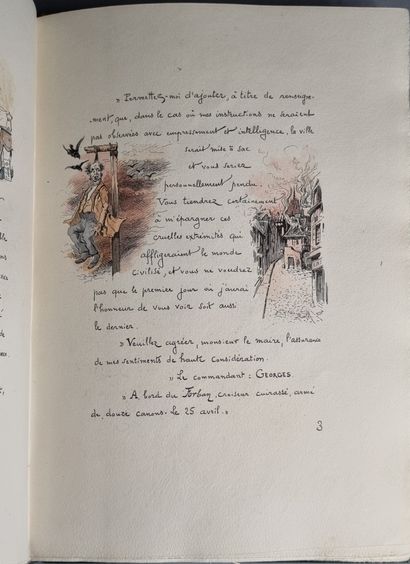 » Permettez-moi d'ajouter, à titre de renseigne-
ment, que, dans le cas où mes instructions ne seraient
pas observées avec empressement et intelligence, la ville
serait mise à sac
et vous seriez
personnellement pendu.
Vous tiendrez certainement
à m'épargner ces
cruelles extrémités qui
affligeraient le monde
civilisé, et vous ne voudrez
pas que le premier jour où j'aurai
l'honneur de vous voir soit aussi
le dernier.
» Veuillez agréer, monsieur le maire, l'assurance
de mes sentiments de haute considération.
» Le commandant : GEORGES.
» A bord du Forban, croiseur cuirassé, armé
de douze canons. Le 25 avril. »
3